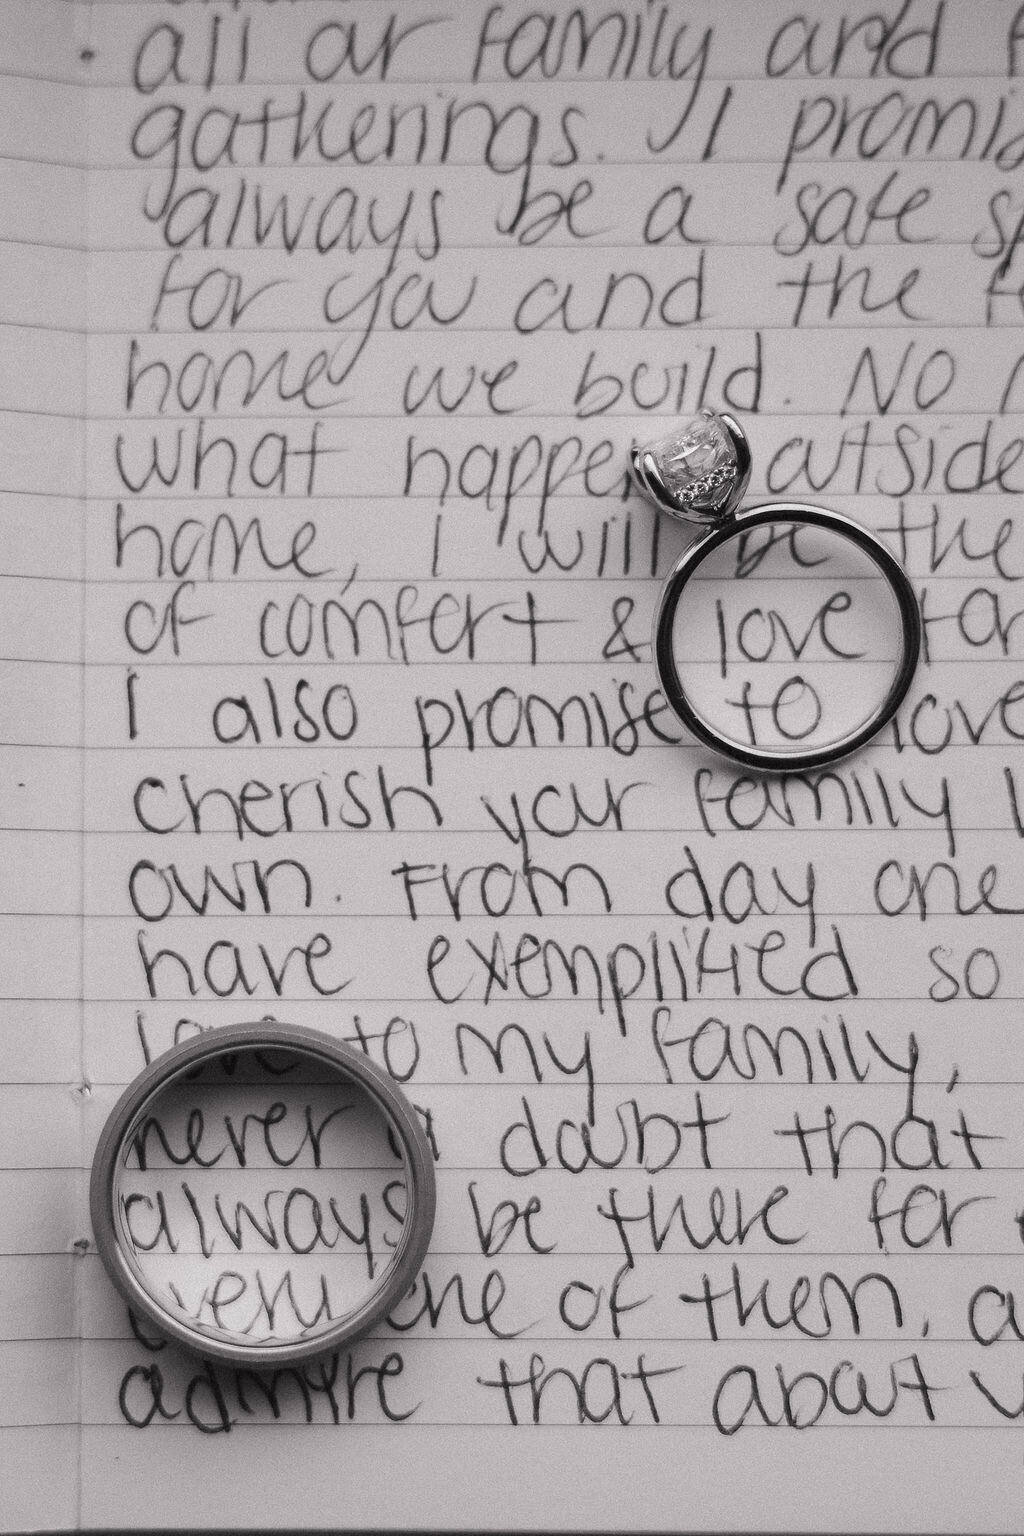 all our family and f
gatherings. I promis
always be a safe sp
for you and the f
home we build. No
what happen outside
home, I will be the
of comfort & love for
I also promise to love
cherish your family l
own. From day one
have exemplified so
love to my family,
never doubt that
always be there for
every one of them. a
admire that about